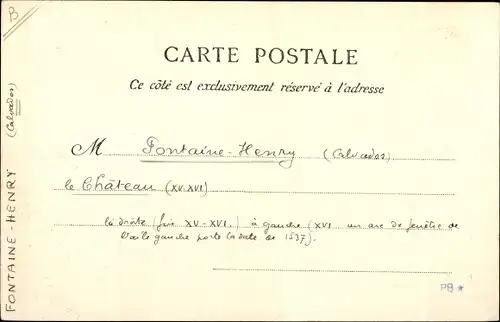 B
CARTE POSTALE
Ce côté est exclusivement réservé à l'adresse
M Fontaine-Henry (Calvados)
le Château (XV-XVI)
à droite (fin XV-XVI) à gauche (XVI un arc de fenêtre de
l'aile gauche porte la date de 1537).
PB *
FONTAINE-HENRY (Calvados)